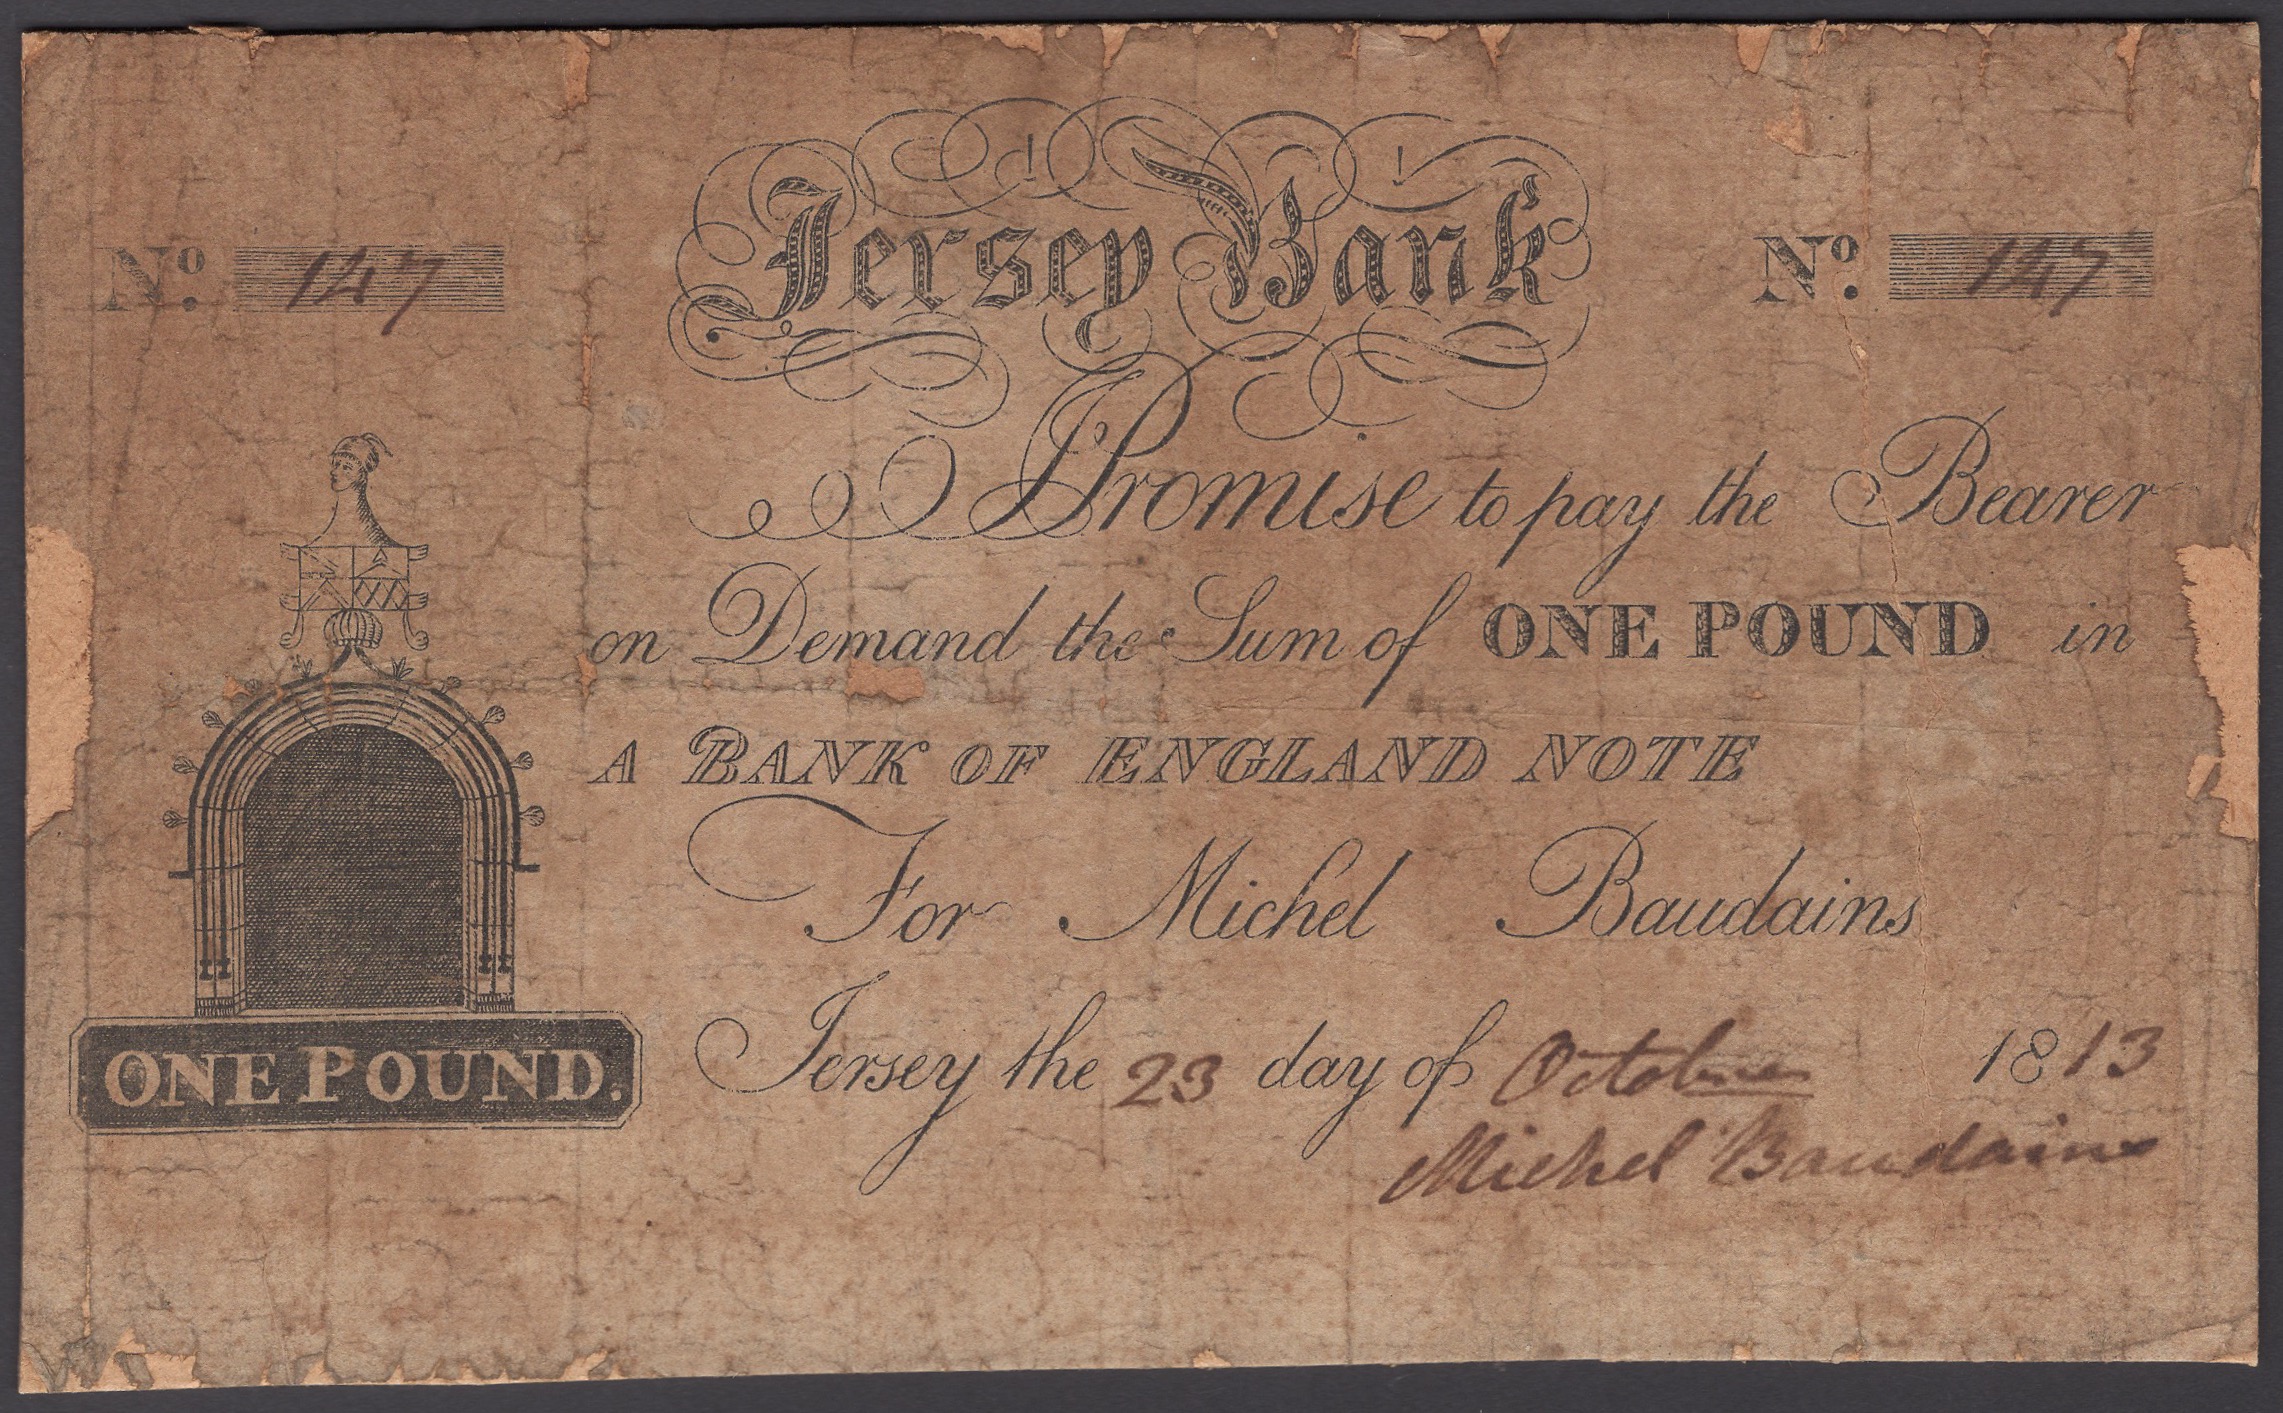 Jersey Bank
No. 147
No. 147
I Promise to pay the Bearer
on Demand the Sum of ONE POUND in
A BANK OF ENGLAND NOTE
For Michel Baudains
Jersey the 23 day of Octobre 1813
Michel Baudains
ONE POUND.